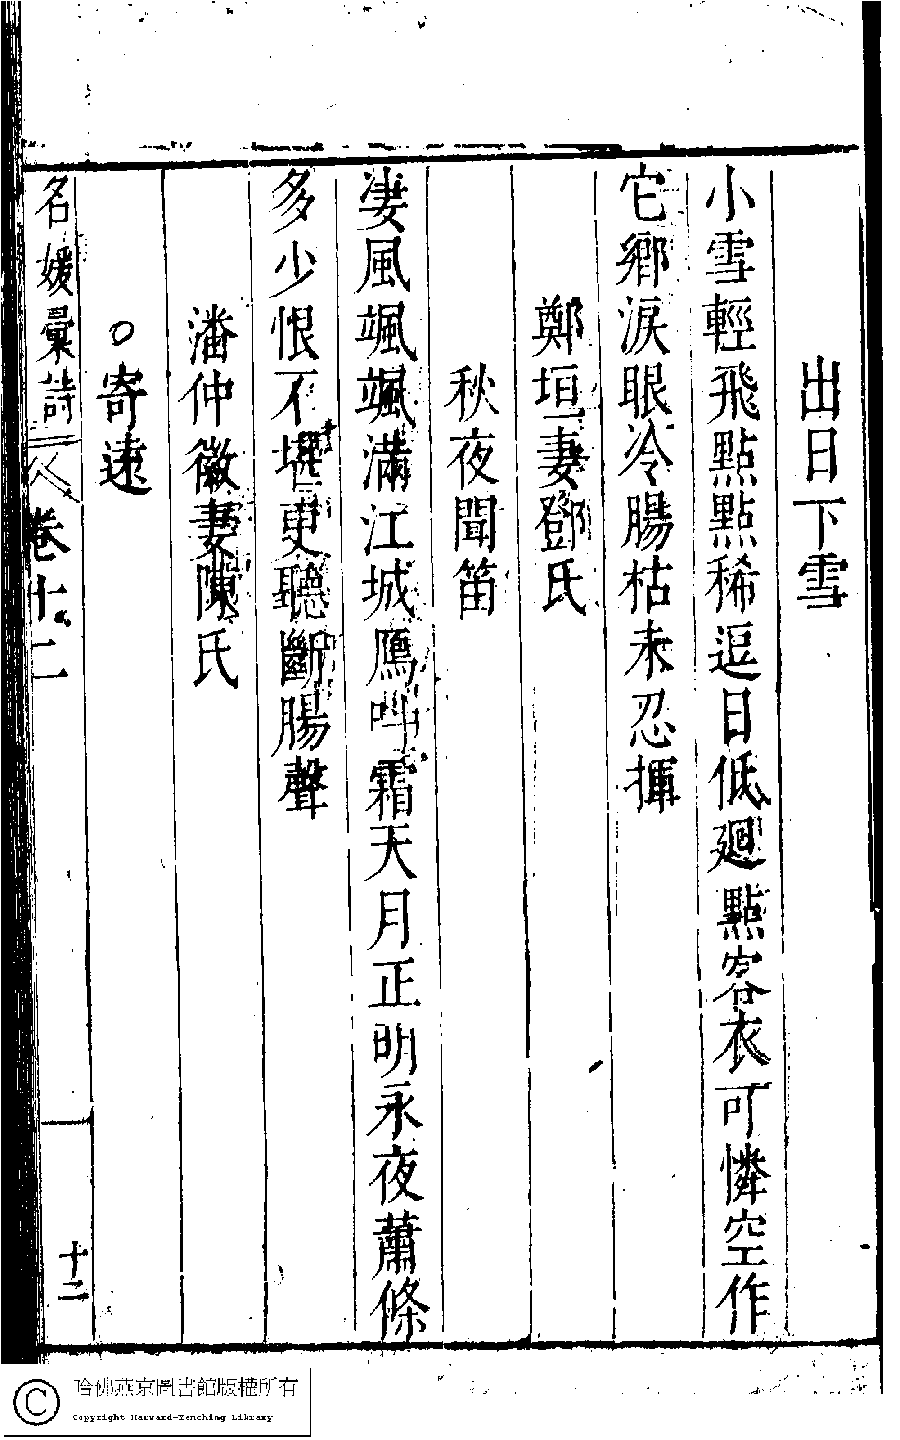 出日下雪
小雪輕飛點點稀逗日低迴點客衣可憐空作
它鄉淚眼冷腸枯未忍揮
鄭垣妻鄧氏
秋夜聞笛
淒風颯颯滿江城鴈呌霜天月正明永夜蕭條
多少恨不堪更聽斷腸聲
潘仲徽妻陳氏
○寄遠
名媛彙詩 卷十二
十二
哈佛燕京圖書館版權所有
Copyright Harvard-Yenching Library